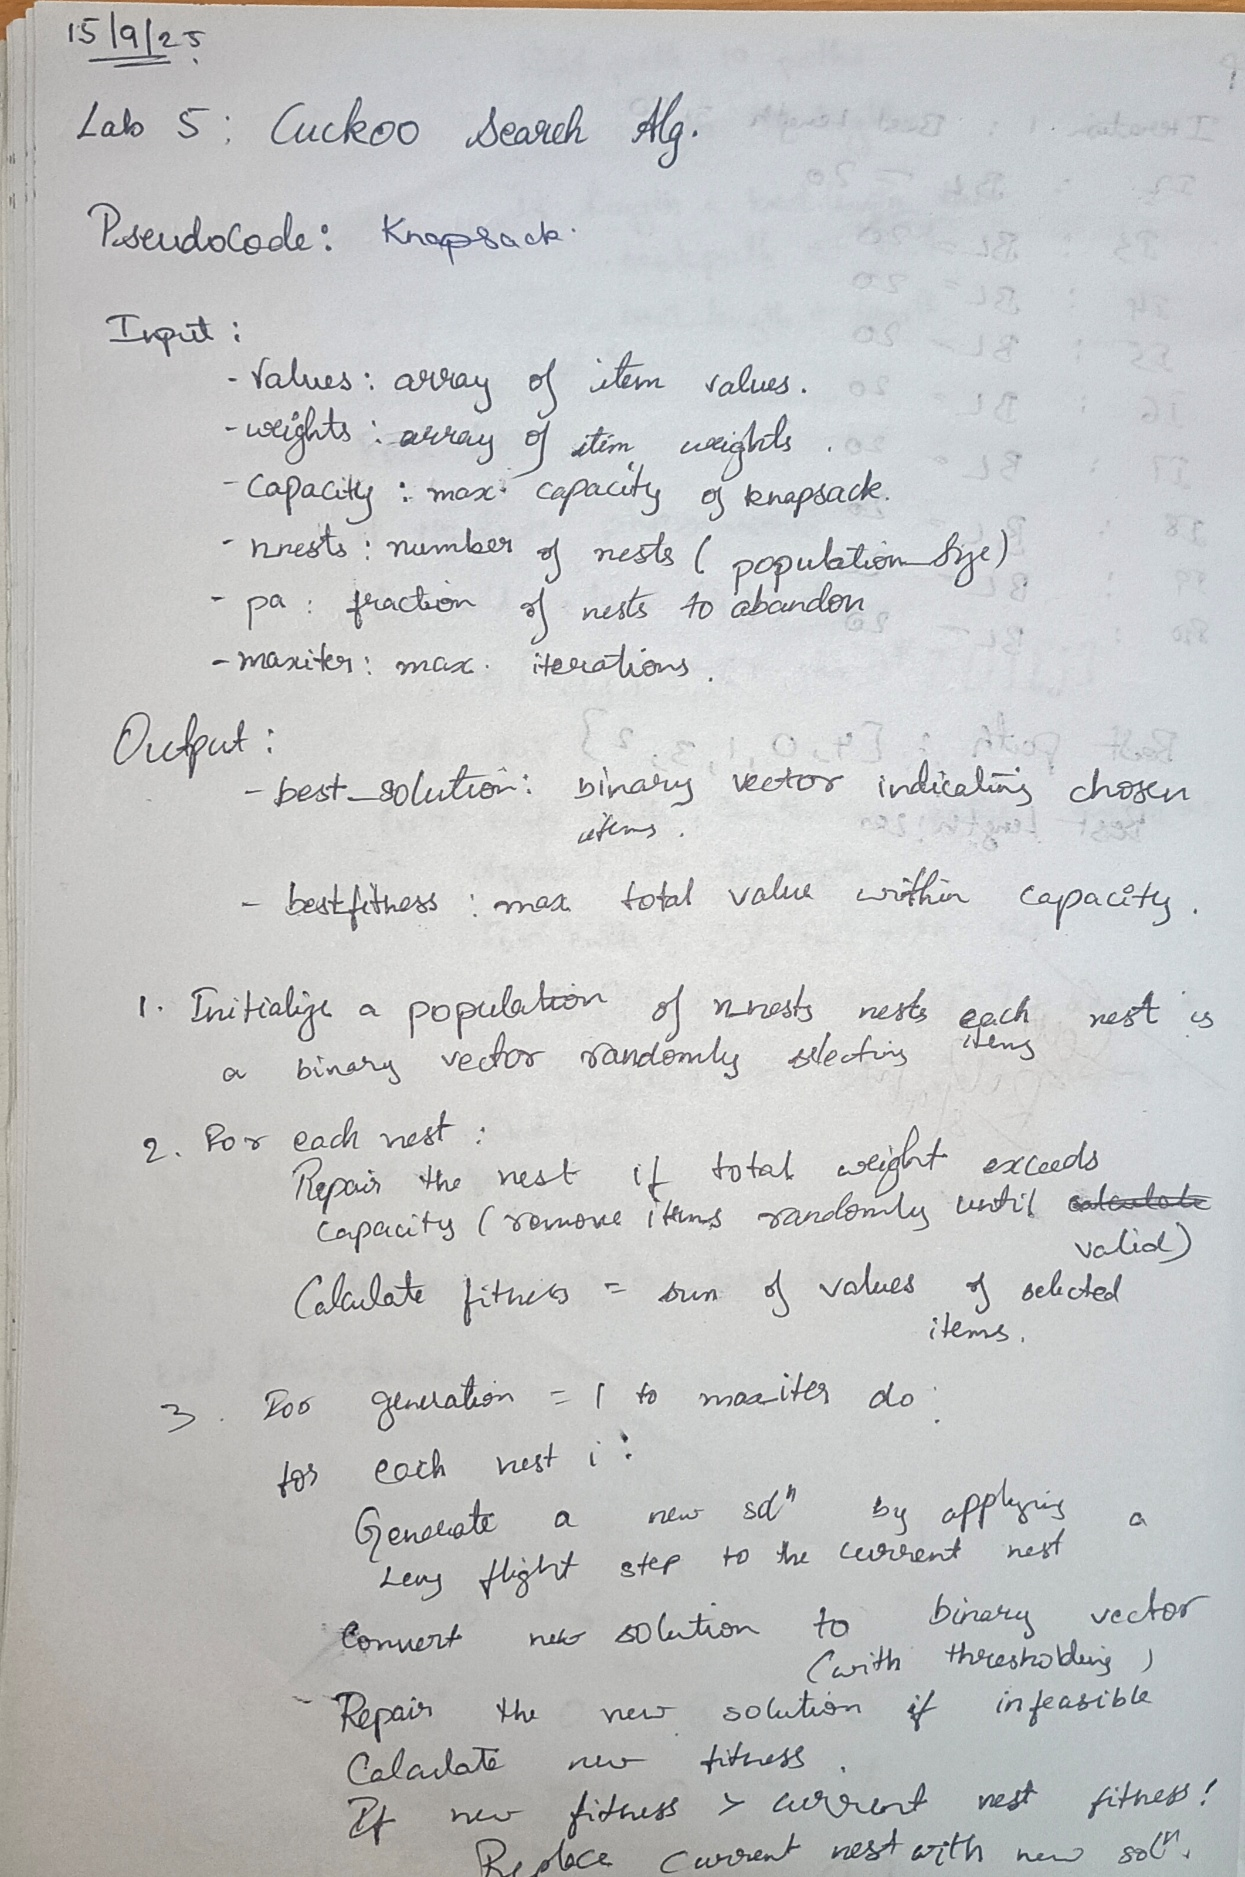 15/9/25
Lab 5: Cuckoo Search Alg.
Pseudocode: Knapsack.
Input:
- Values: array of item values.
- weights: array of item weights.
- Capacity: max. capacity of knapsack.
- n_nests: number of nests (population_size)
- pa: fraction of nests to abandon
- maxiter: max. iterations.
Output:
- best_solution: binary vector indicating chosen
items.
- bestfitness: max total value within capacity.
1. Initialize a population of n_nests nests each nest is
a binary vector randomly selecting items
2. For each nest:
Repair the nest if total weight exceeds
capacity (remove items randomly until calculate
valid)
Calculate fitness = sum of values of selected
items.
3. For generation = 1 to maxiter do:
for each nest i:
Generate a new solⁿ by applying a
Levy flight step to the current nest
Convert new solution to binary vector
(with thresholding)
- Repair the new solution if infeasible
Calculate new fitness.
If new fitness > current nest fitness:
Replace current nest with new solⁿ.